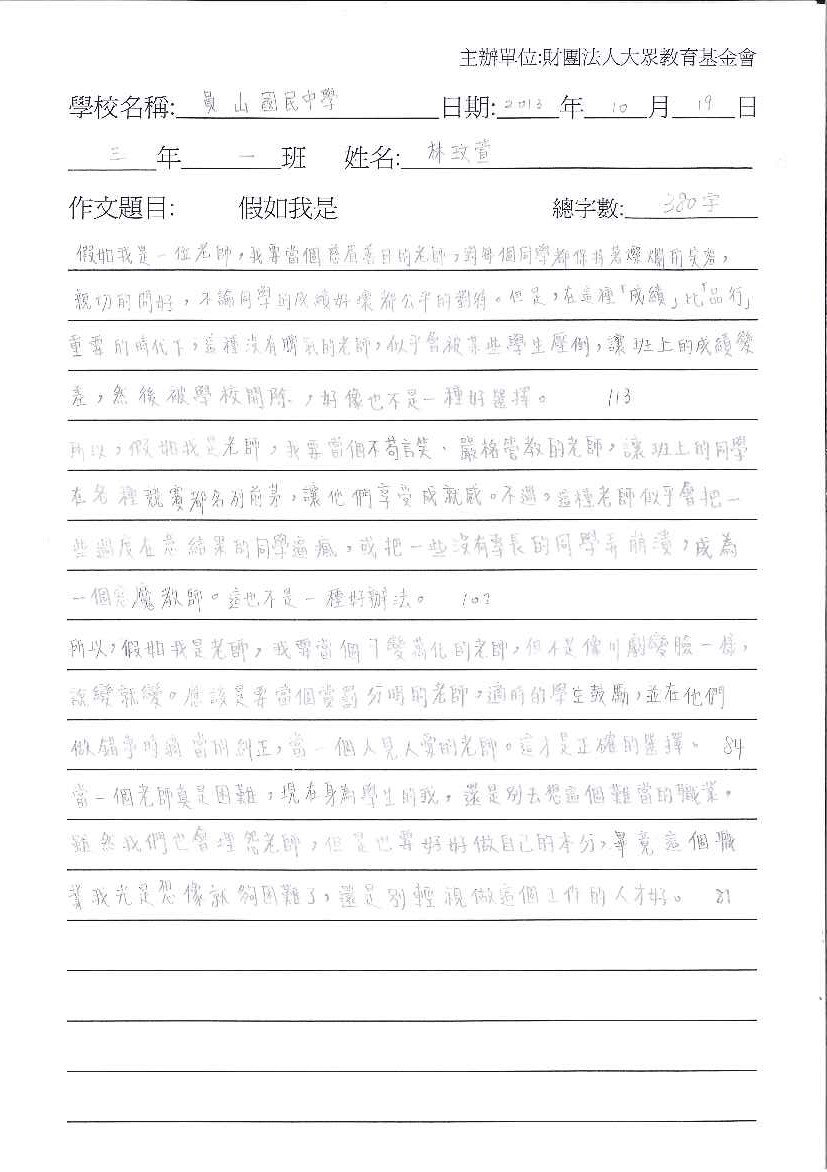 主辦單位:財團法人大眾教育基金會
學校名稱: 員山國民中學 日期: 2013 年 10 月 19 日
三 年 一 班 姓名: 林玟萱
作文題目: 假如我是 總字數: 380字
假如我是一位老師，我要當個慈眉善目的老師，對每個同學都保持著燦爛的笑容，
親切的問好，不論同學的成績好壞都公平的對待。但是，在這種「成績」比「品行」
重要的時代下，這種沒有脾氣的老師，似乎會被某些學生壓倒，讓班上的成績變
差，然後被學校開除，好像也不是一種好選擇。 113
所以，假如我是老師，我要當個不苟言笑、嚴格管教的老師，讓班上的同學
在各種競賽都名列前茅，讓他們享受成就感。不過，這種老師似乎會把一
些過度在意結果的同學逼瘋，或把一些沒有專長的同學弄崩潰，成為
一個惡魔教師。這也不是一種好辦法。 102
所以，假如我是老師，我要當個千變萬化的老師，但不是像川劇變臉一樣，
說變就變。應該是要當個賞罰分明的老師，適時的學生鼓勵，並在他們
做錯事時適當的糾正，當一個人見人愛的老師。這才是正確的選擇。 84
當一個老師真是困難，現在身為學生的我，還是別去想這個難當的職業。
雖然我們也會埋怨老師，但是也要好好做自己的本分，畢竟這個職
業我光是想像就夠困難了，還是別輕視做這個工作的人才好。 81